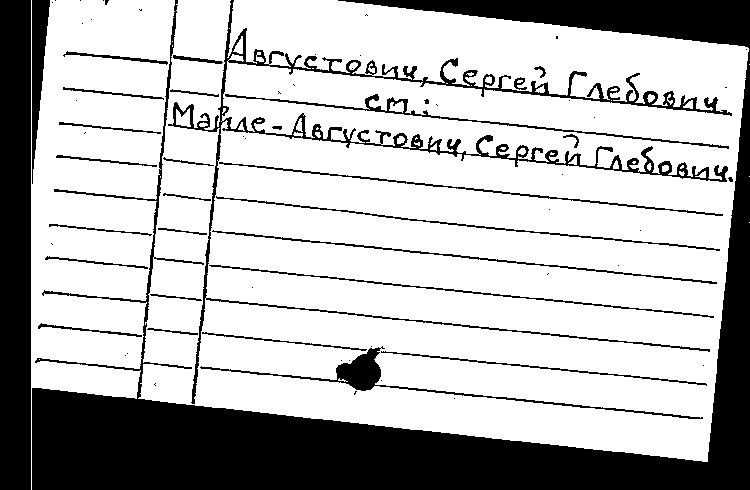 Августович, Сергей Глебович.
см.:
Майле-Августович, Сергей Глебович.